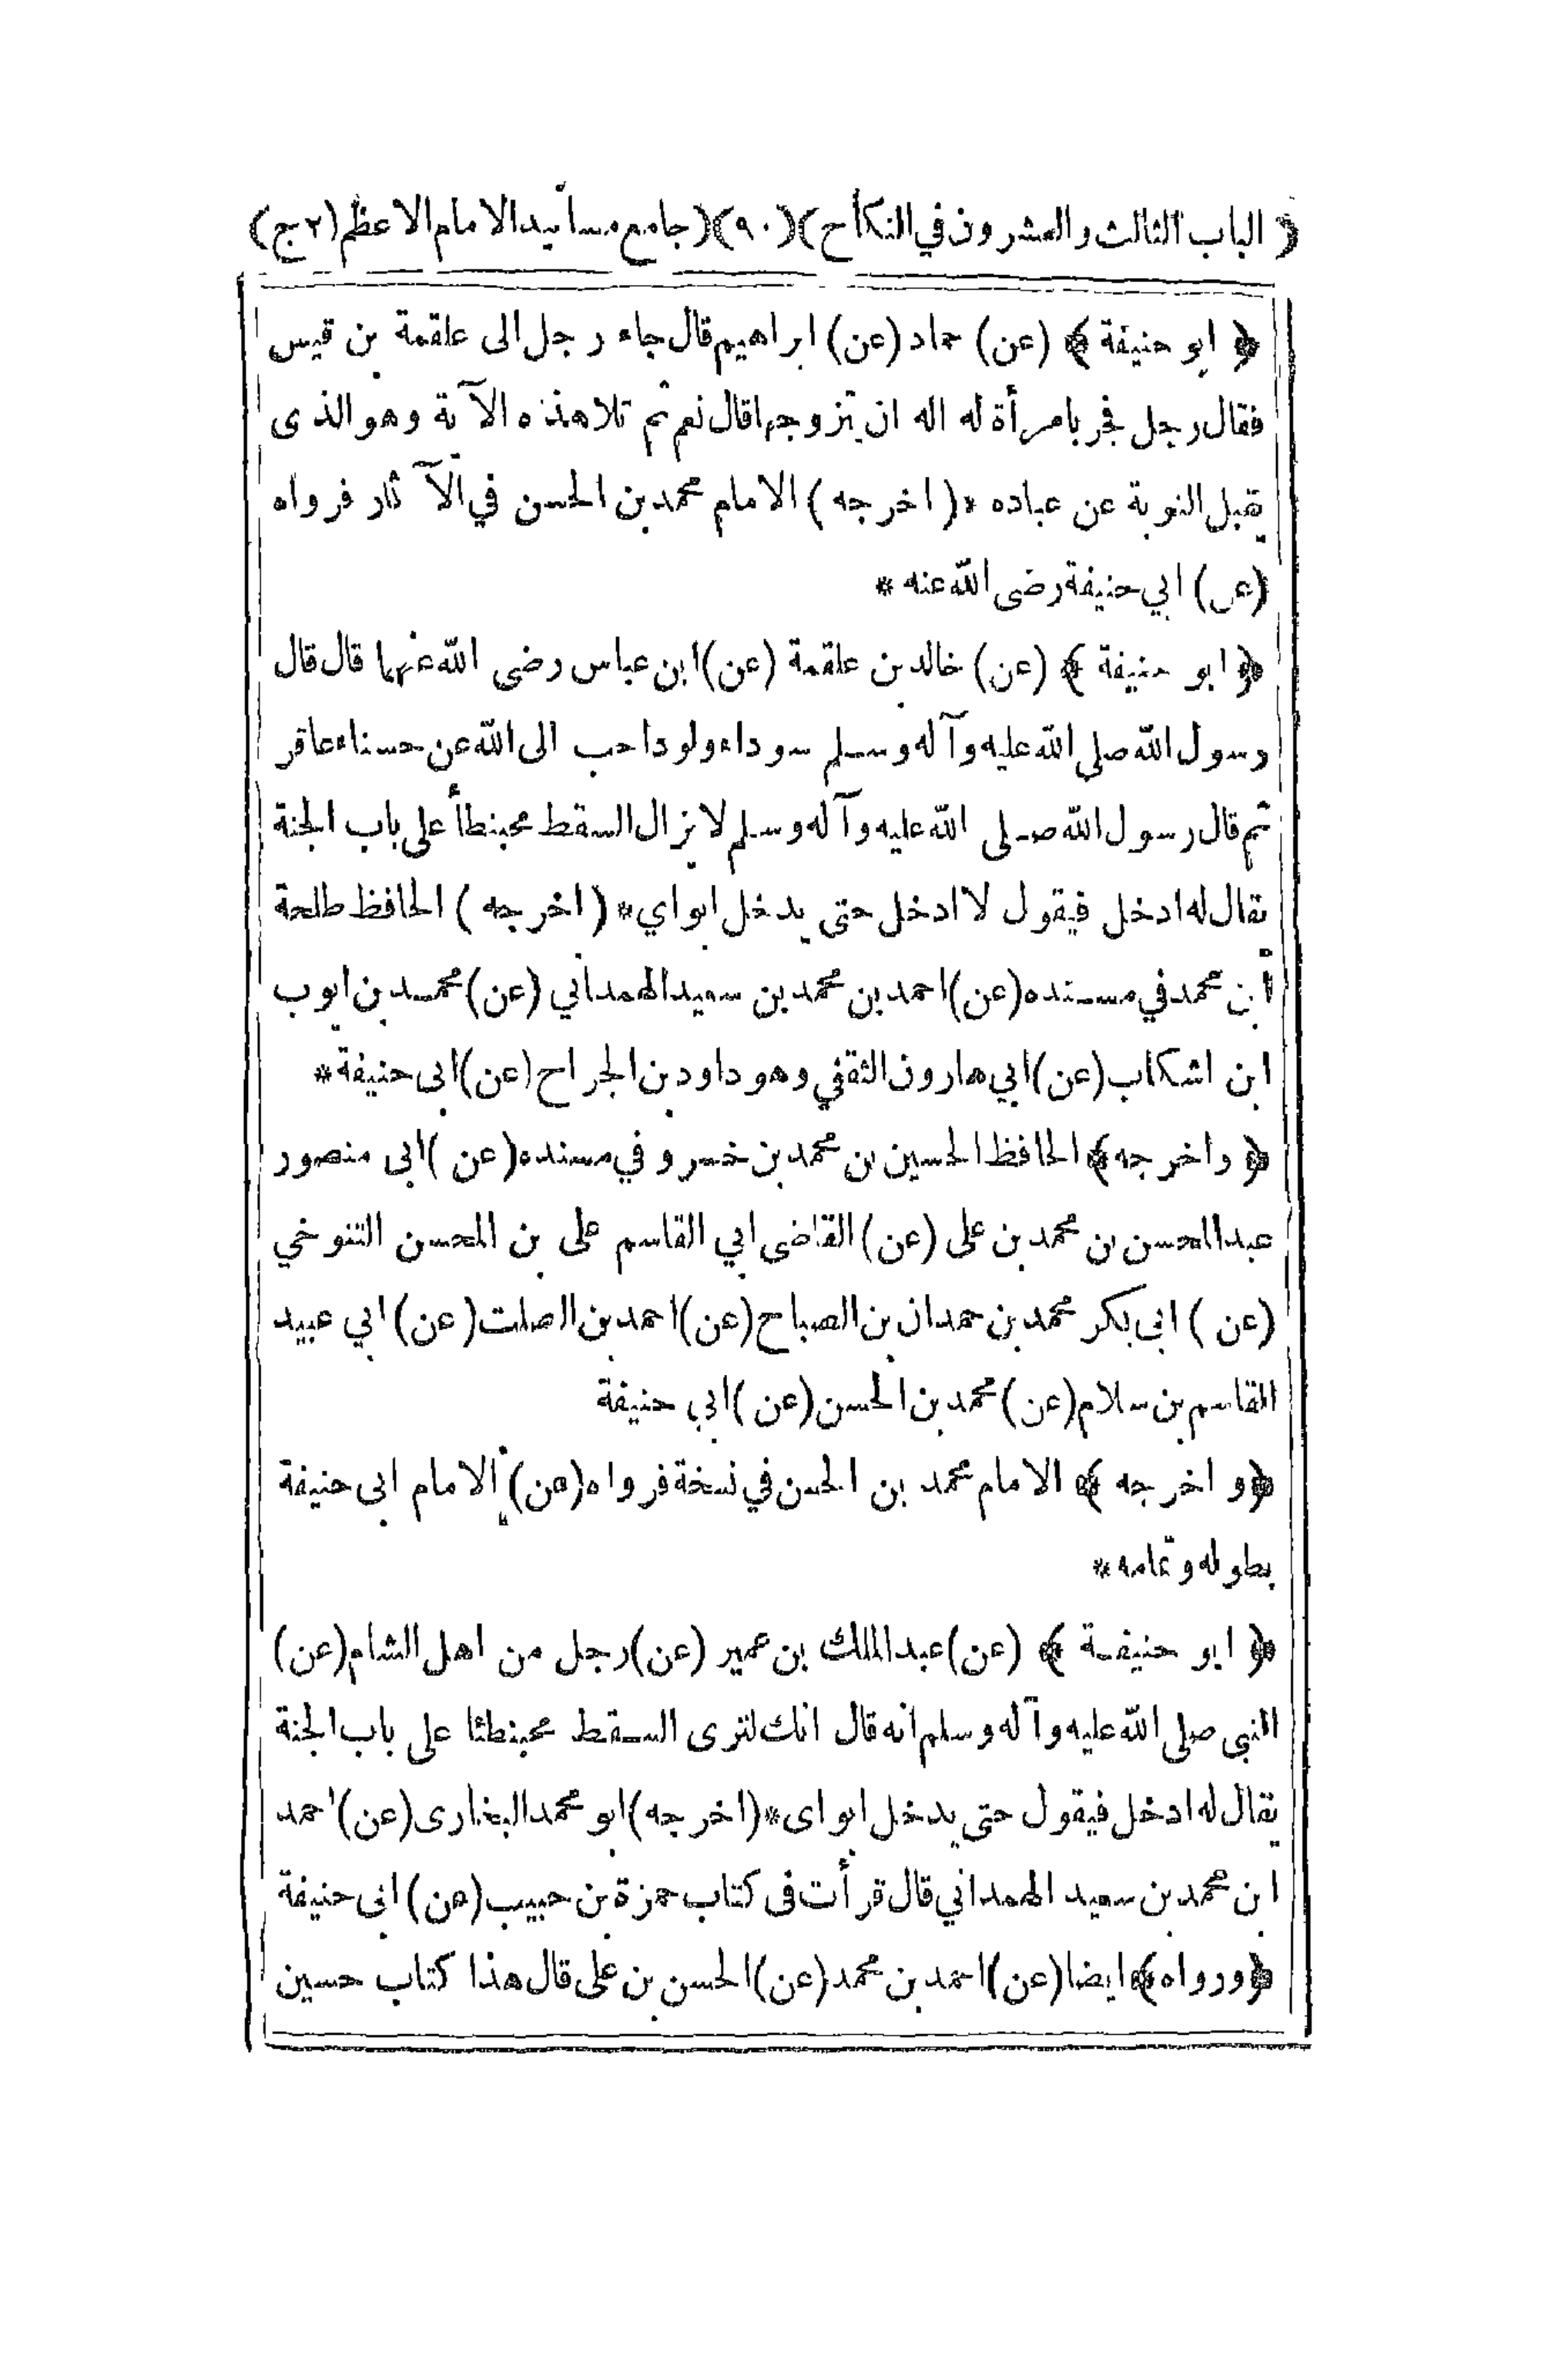 ( الباب الثالث والعشرون في النكاح )(٩٠)( جامع مسانيد الامام الاعظم (٢ج)
﴿ ابو حنيفة ﴾ (عن) حماد (عن) ابراهيم قال جاء رجل الى علقمة بن قيس
فقال رجل فجر بامرأة له اله ان يتزوجها قال نعم ثم تلا هذه الآية وهو الذى
يقبل التوبة عن عباده * ( اخرجه ) الامام محمد بن الحسن في الآثار فرواه
(عن) ابي حنيفة رضى الله عنه *
﴿ ابو حنيفة ﴾ (عن) خالد بن علقمة (عن) ابن عباس رضى الله عنهما قال قال
رسول الله صلى الله عليه وآله وسلم سوداء ولود احب الى الله عن حسناء عاقر
ثم قال رسول الله صلى الله عليه وآله وسلم لا يزال السقط محبنطأ على باب الجنة
يقال له ادخل فيقول لا ادخل حتى يدخل ابواي * ( اخرجه ) الحافظ طلحة
ابن محمد في مسنده (عن) احمد بن محمد بن سعيد الهمداني (عن) محمد بن ايوب
ابن اشكاب (عن) ابي هارون الثقفي وهو داود بن الجراح (عن) ابى حنيفة *
﴿ واخرجه ﴾ الحافظ الحسين بن محمد بن خسرو في مسنده (عن) ابى منصور
عبد المحسن بن محمد بن على (عن) القاضى ابي القاسم على بن المحسن التنوخي
(عن) ابى بكر محمد بن حمدان بن الصباح (عن) احمد بن الصلت (عن) ابي عبيد
القاسم بن سلام (عن) محمد بن الحسن (عن) ابي حنيفة
﴿ واخرجه ﴾ الامام محمد بن الحسن في نسخة فرواه (عن) الامام ابى حنيفة
بطوله وتمامه *
﴿ ابو حنيفة ﴾ (عن) عبد الملك بن عمير (عن) رجل من اهل الشام (عن)
النبى صلى الله عليه وآله وسلم انه قال انك لترى السقط محبنطئا على باب الجنة
يقال له ادخل فيقول حتى يدخل ابواى * (اخرجه) ابو محمد البخارى (عن) احمد
ابن محمد بن سعيد الهمداني قال قرأت فى كتاب حمزة بن حبيب (عن) ابى حنيفة
﴿ ورواه ﴾ ايضا (عن) احمد بن محمد (عن) الحسن بن على قال هذا كتاب حسين